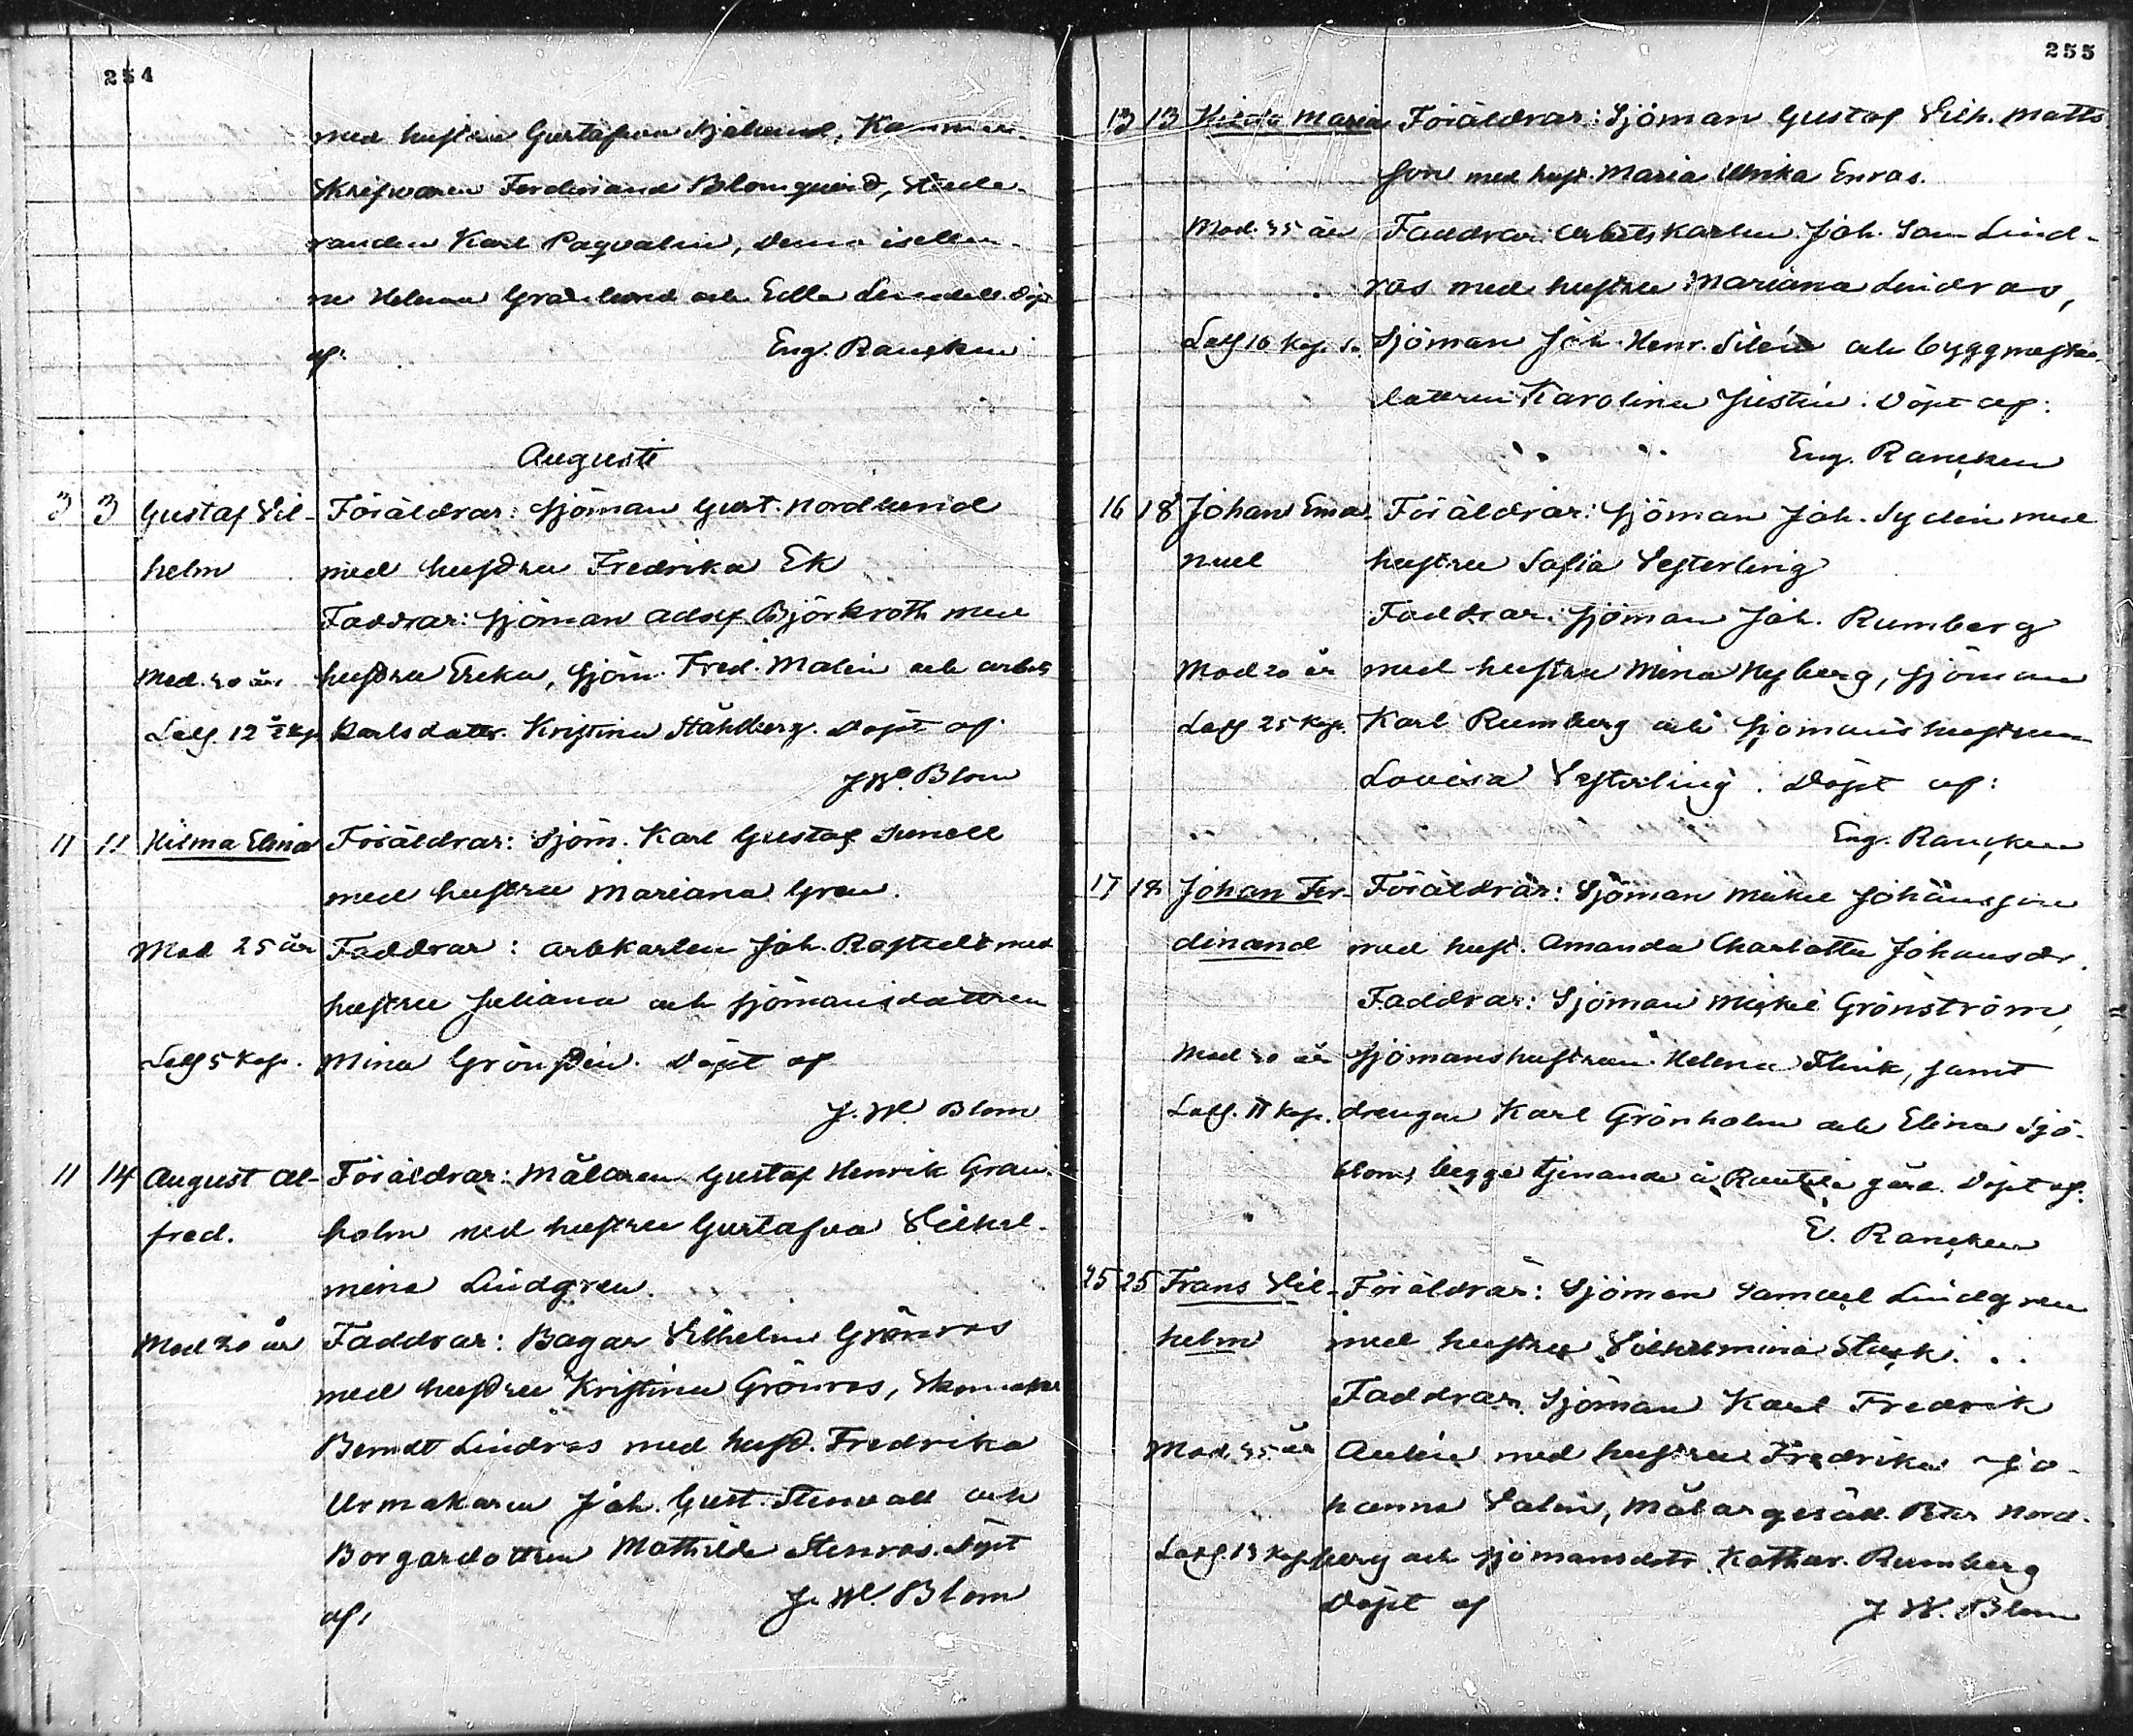 254
med hustru Gustafva Sjölund, Kammar-
skrifvaren Ferdinand Blomqvist, Stude-
randen Karl Paqvalin, Demoisellen-
ne Helena Granlund och Edla Lindell. Döpt
af: Eng. Rancken
Augusti
3 3 Gustaf Vil- Föräldrar: sjöman Gust. Nordlund
helm med hustru Fredrika Ek
Faddrar: sjöman Adolf Björkroth med
Mod. 20 år hustru Erika, sjöm. Fred. Malin och arbets
Lasz. 12 ½ kop karlsdottr. Kristina Ståhlberg. Döpt af
J W. Blom
11 11 Hilma Elina Föräldrar: Sjöm. Karl Gustaf Sinell
med hustru Mariana Gren.
Mod 25 år Faddrar: arbkarlen Joh. Rostedt med
hustru Juliana och sjömansdottren
5 Kop. Mina Grönstén. Döpt af
J. W. Blom
11 14 August Al- Föräldrar: Målaren Gustaf Henrik Gran-
fred. holm med hustru Gustafva Vilhel-
mina Lindgren.
Mod 20 år Faddrar: Bagar Vilhelm Grönros
med hustru Kristina Grönros, Skomakar
Berndt Lindros med hust. Fredrika
Urmakaren Joh. Gust. Stenvall och
Borgardottren Mathilda Stenros. Döpt
af, J. W. Blom
255
13 13 Hilda Maria Föräldrar: Sjöman Gustaf Vilh. Matts
son med hust. Maria Ulrika Enros.
Mod. 35 år Faddrar: Arbetskarlen Joh. Sam Lind-
ros med hustru Mariana Lindros,
16 Kop. s. Sjöman Joh. Henr. Silén och byggmestar
dottren Karolina Justin. Döpt af:
Eng. Rancken
16 18 Johan Ema- Föräldrar: Sjöman Joh. Sydén med
nuel hustru Sofia Vesterling
Faddrar: sjöman Joh. Rumberg
Mod 20 år med hustru Mina Nyberg, sjöman
25 Kop. Karl Rumberg och sjömanshustrun
Lovisa Vesterling. Döpt af:
Eng. Rancken
17 18 Johan Fer- Föräldrar: Sjöman Mickel Johansson
dinand med hust. Amanda Charlotta Johansdr.
Faddrar: Sjöman Mickel Grönström,
Mod 20 år sjömanshustrun Helena Flink, samt
11 kop. drengen Karl Grönholm och Elina Sjö-
blom, begge tjenande å Rantila gård. Döpt af:
E. Rancken
25 25 Frans Vil- Föräldrar: Sjöman Samuel Lindgren
helm med hustru Vilhelmina Stark.
Faddrar: Sjöman Karl Fredrik
Mod. 35 år Aulin med hustru Fredrika Jo-
hanna Salin, Målargesäll. Peter Nord-
13 kop berg och sjömansdotr. Kathar. Rumberg
Döpt af J W. Blom